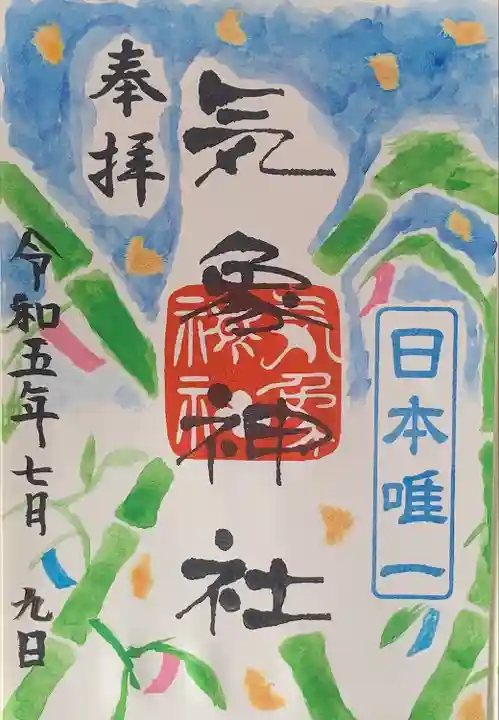 日本唯一
気象神社
気象
神社
奉拝
令和五年七月九日